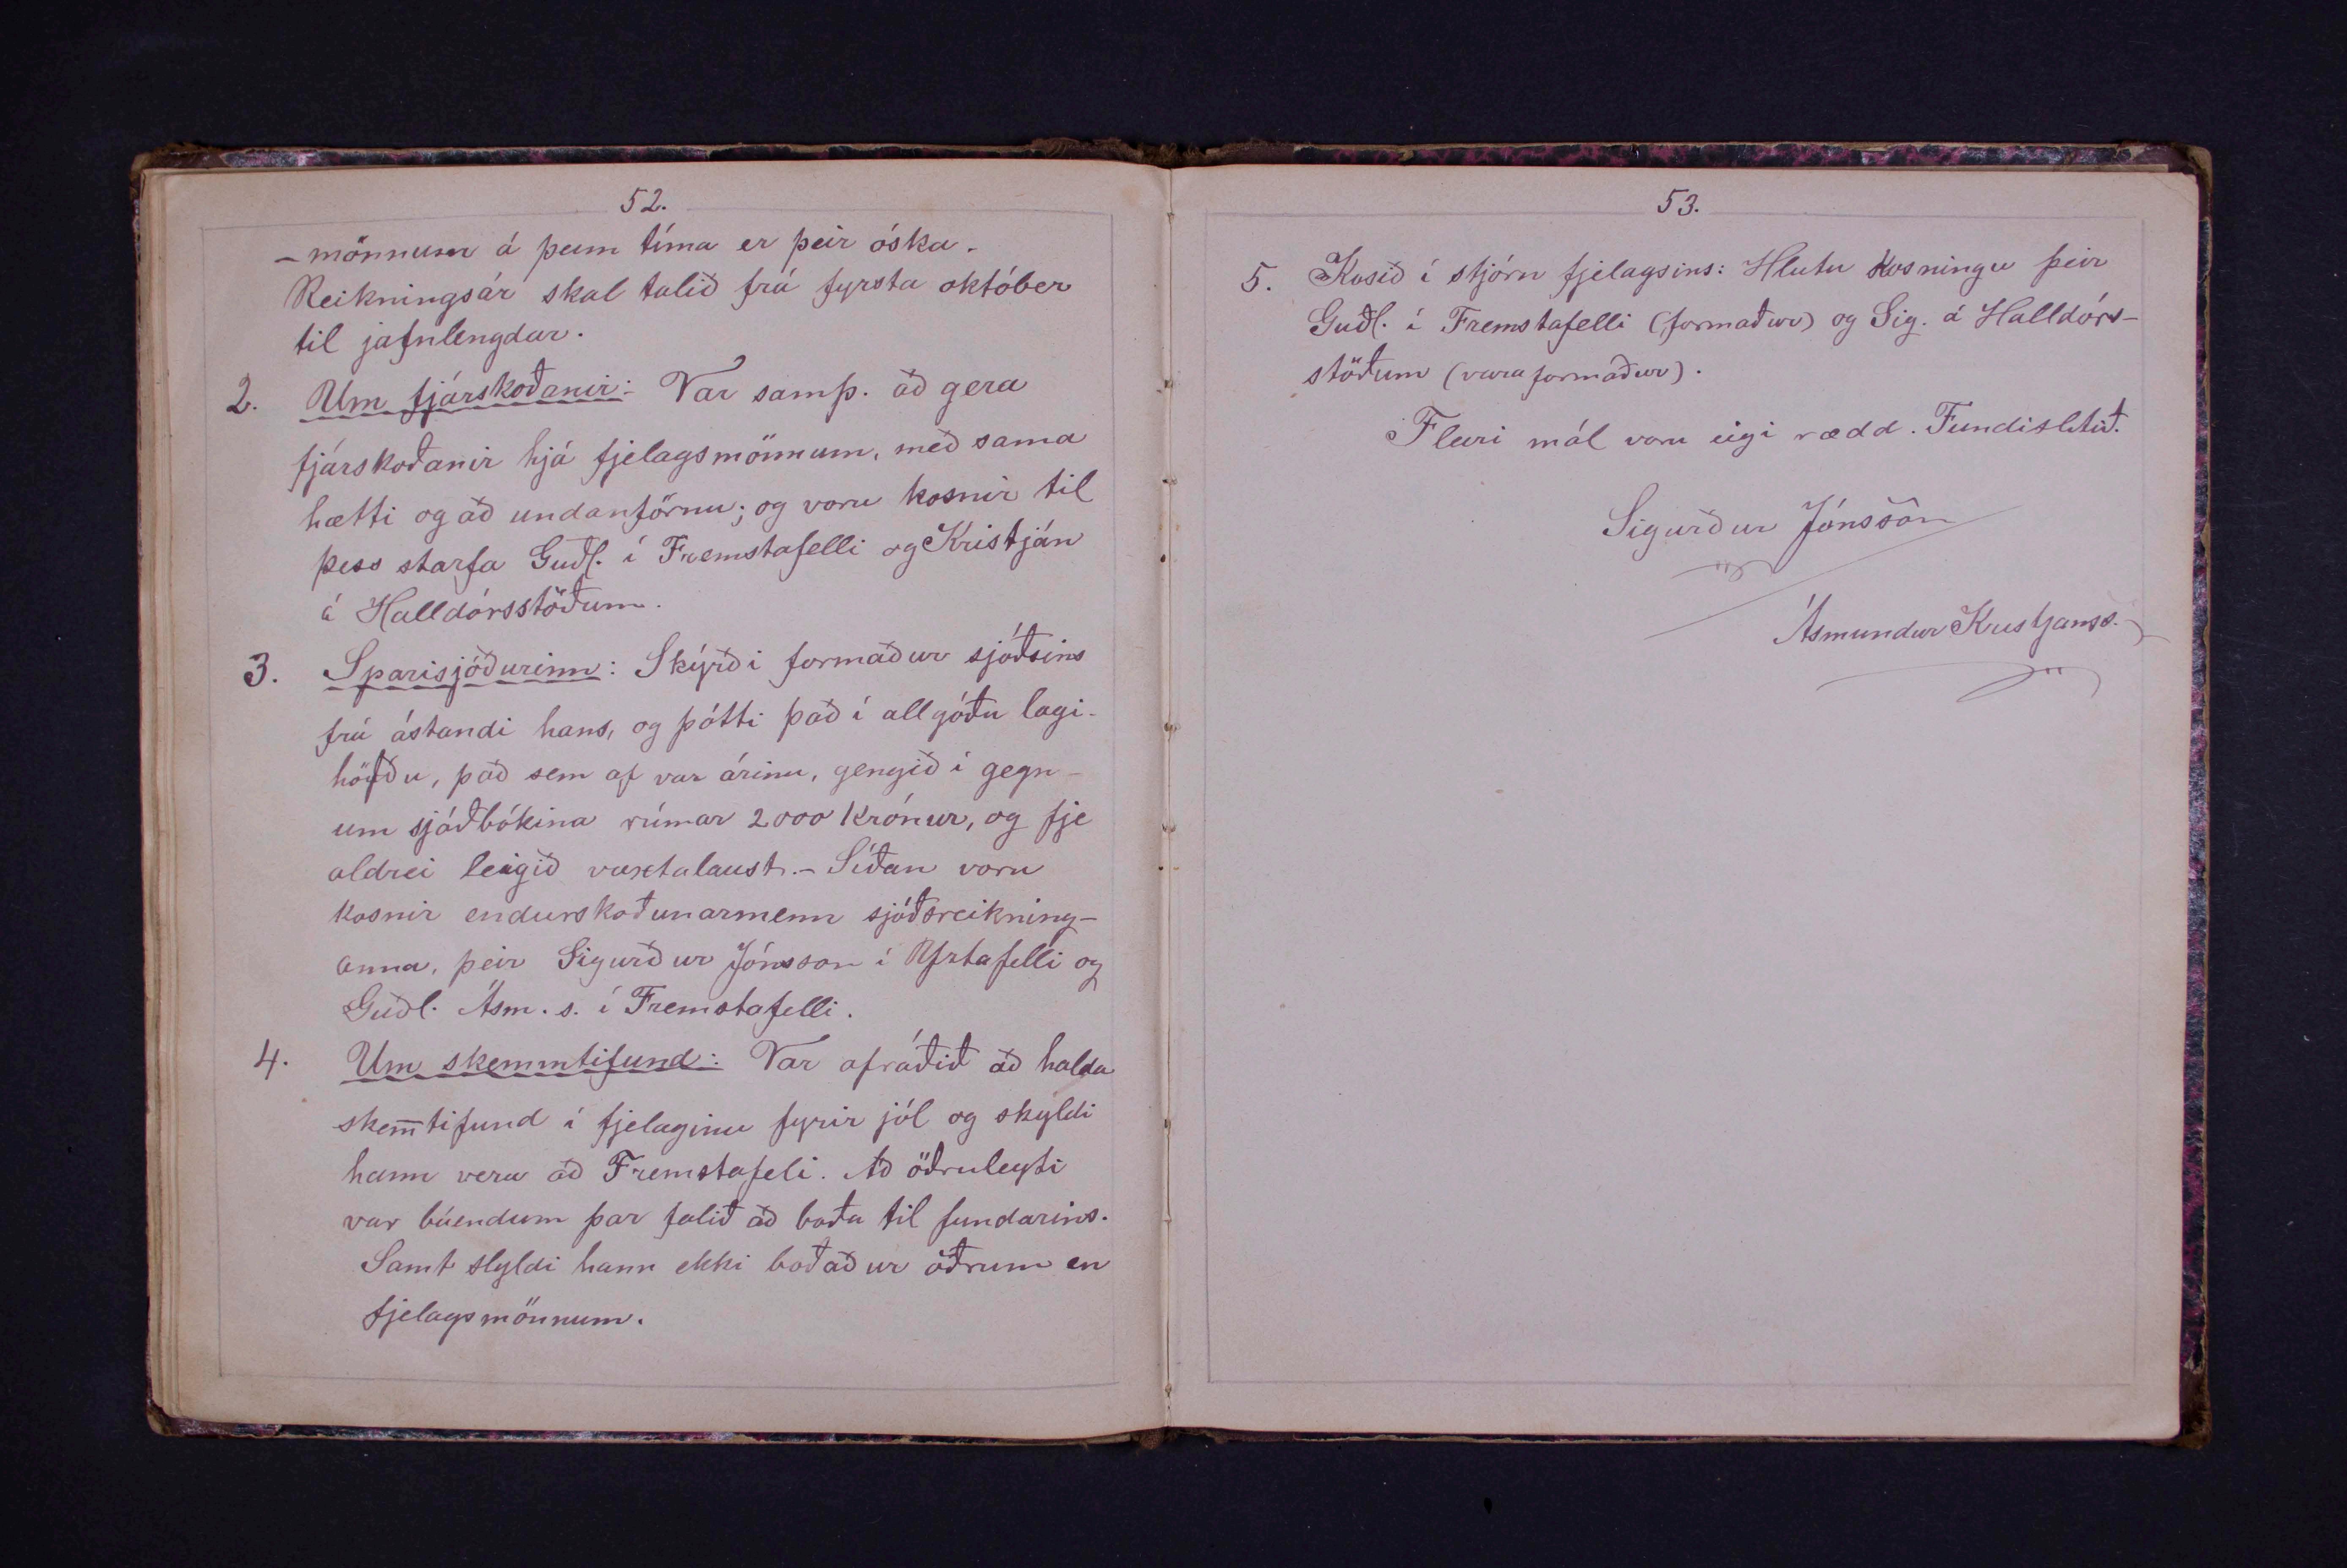 52.
- mönnum á þeim tíma er þeir óska.
Reikningsár skal talið frá fyrsta október
til jafnlengdar.
2. Um fjárskoðanir: Var samþ. að gera
fjárskoðanir hjá fjelagsmönnum, með sama
hætti og að undanförnu; og voru kosnir til
þess starfa Guðl. í Fremstafelli og Kristján
á Halldórsstöðum.
3. Sparisjóðurinn: Skýrði formaður sjóðsins
frá ástandi hans, og þótti það í allgóðu lagi.
höfðu, það sem af var árinu, gengið í gegn-
um sjóðbókina rúmar 2000 krónur, og fje
aldrei leigið vaxtalaust. - Síðan voru
kosnir endurskoðunarmenn sjóðsreikning-
anna, þeir Sigurður Jónsson í Yztafelli og
Guðl. Ásm. s. í Fremstafelli.
4. Um skemmtifund: Var afráðið að halda
skem̅tifund í fjelaginu fyrir jól og skyldi
hann vera að Fremstafeli. Að öðruleyti
var búendum þar falið að boða til fundarins.
Samt skyldi hann ekki boðaður öðrum en
fjelagsmönnum.
53.
5. Kosið í stjórn fjelagsins: Hlutu kosningu þeir
Guðl. í Fremstafelli (formaður) og Sig. á Halldórs-
stöðum (varaformaður).
Fleiri mál voru eigi rædd. Fundislitið.
Sigurður Jónsson
Ásmundur Kristjánss.